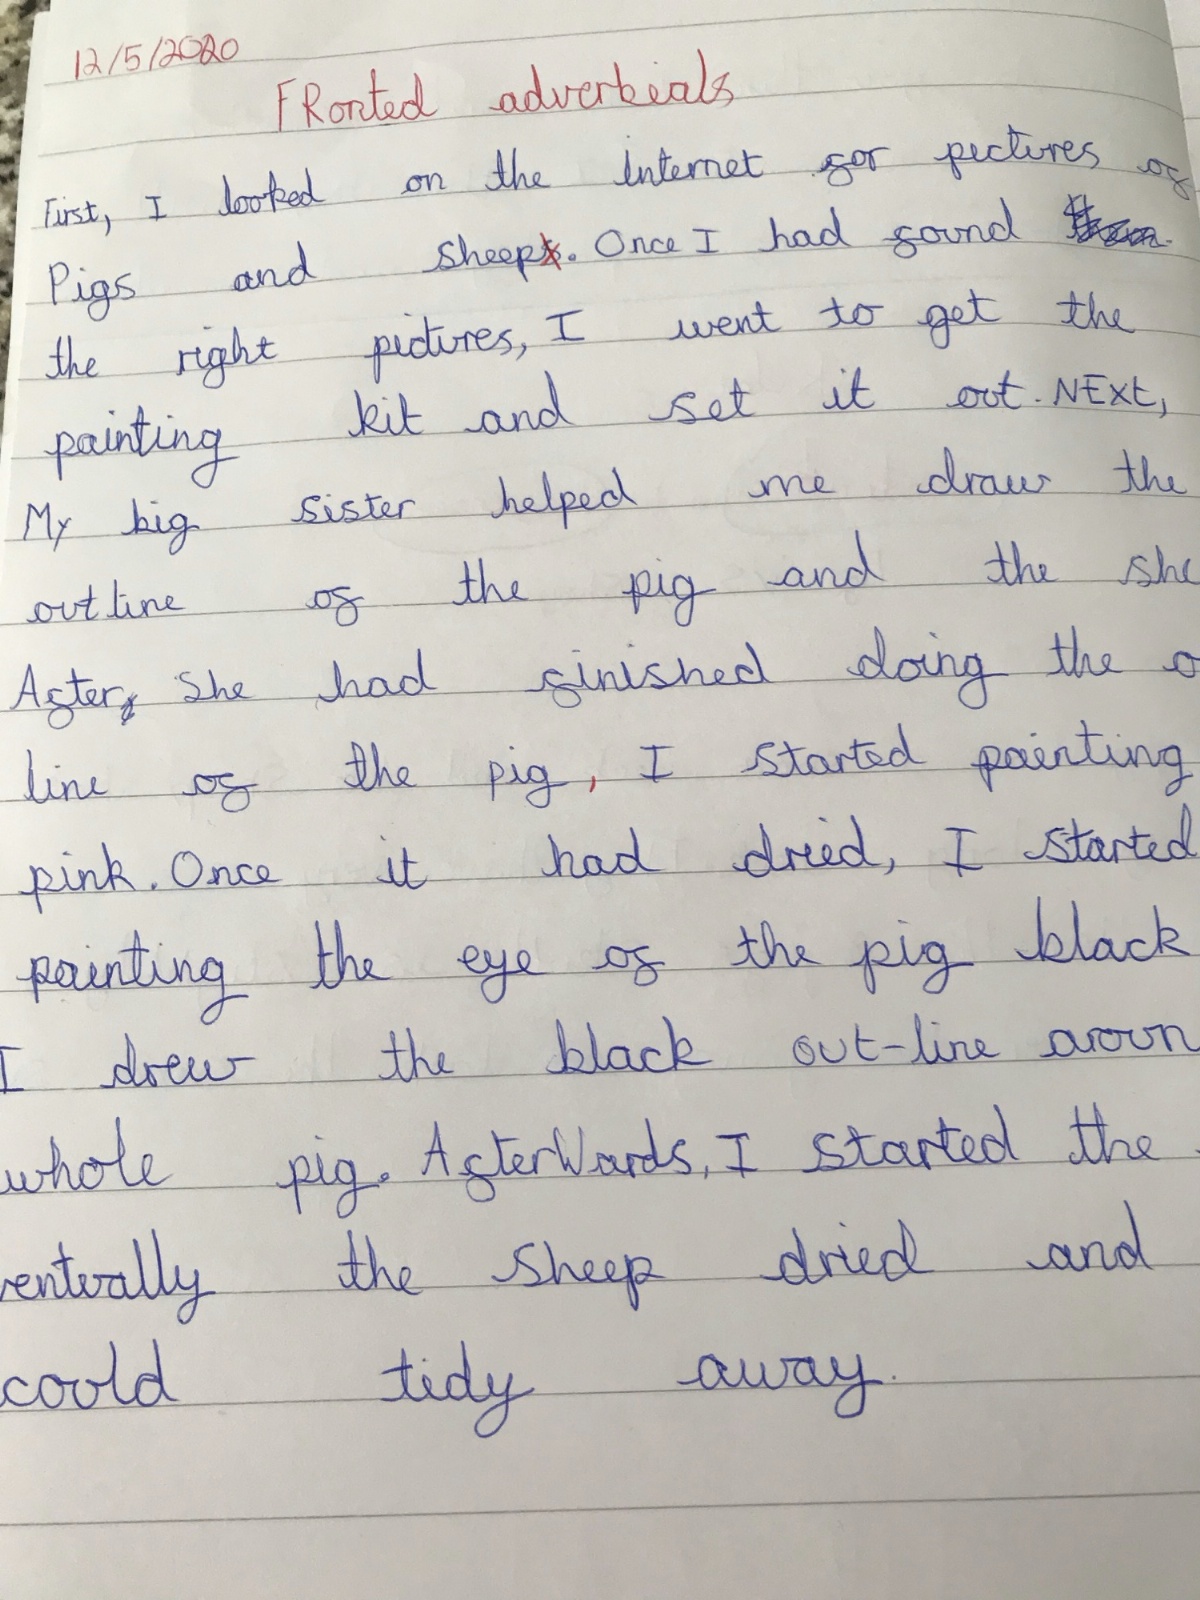 12/5/2020
FRonted adverbials
First, I looked on the internet for pectures of
Pigs and sheep. Once I had found
the right pictures, I went to get the
painting kit and set it out. NExt,
My big sister helped me draw the
outline of the pig and the she
After, she had finished doing the o
line of the pig, I started painting
pink. Once it had dried, I started
painting the eye of the pig black
I drew the black out-line aroun
whole pig. AfterWards, I started the
ventually the sheep dried and
could tidy away.